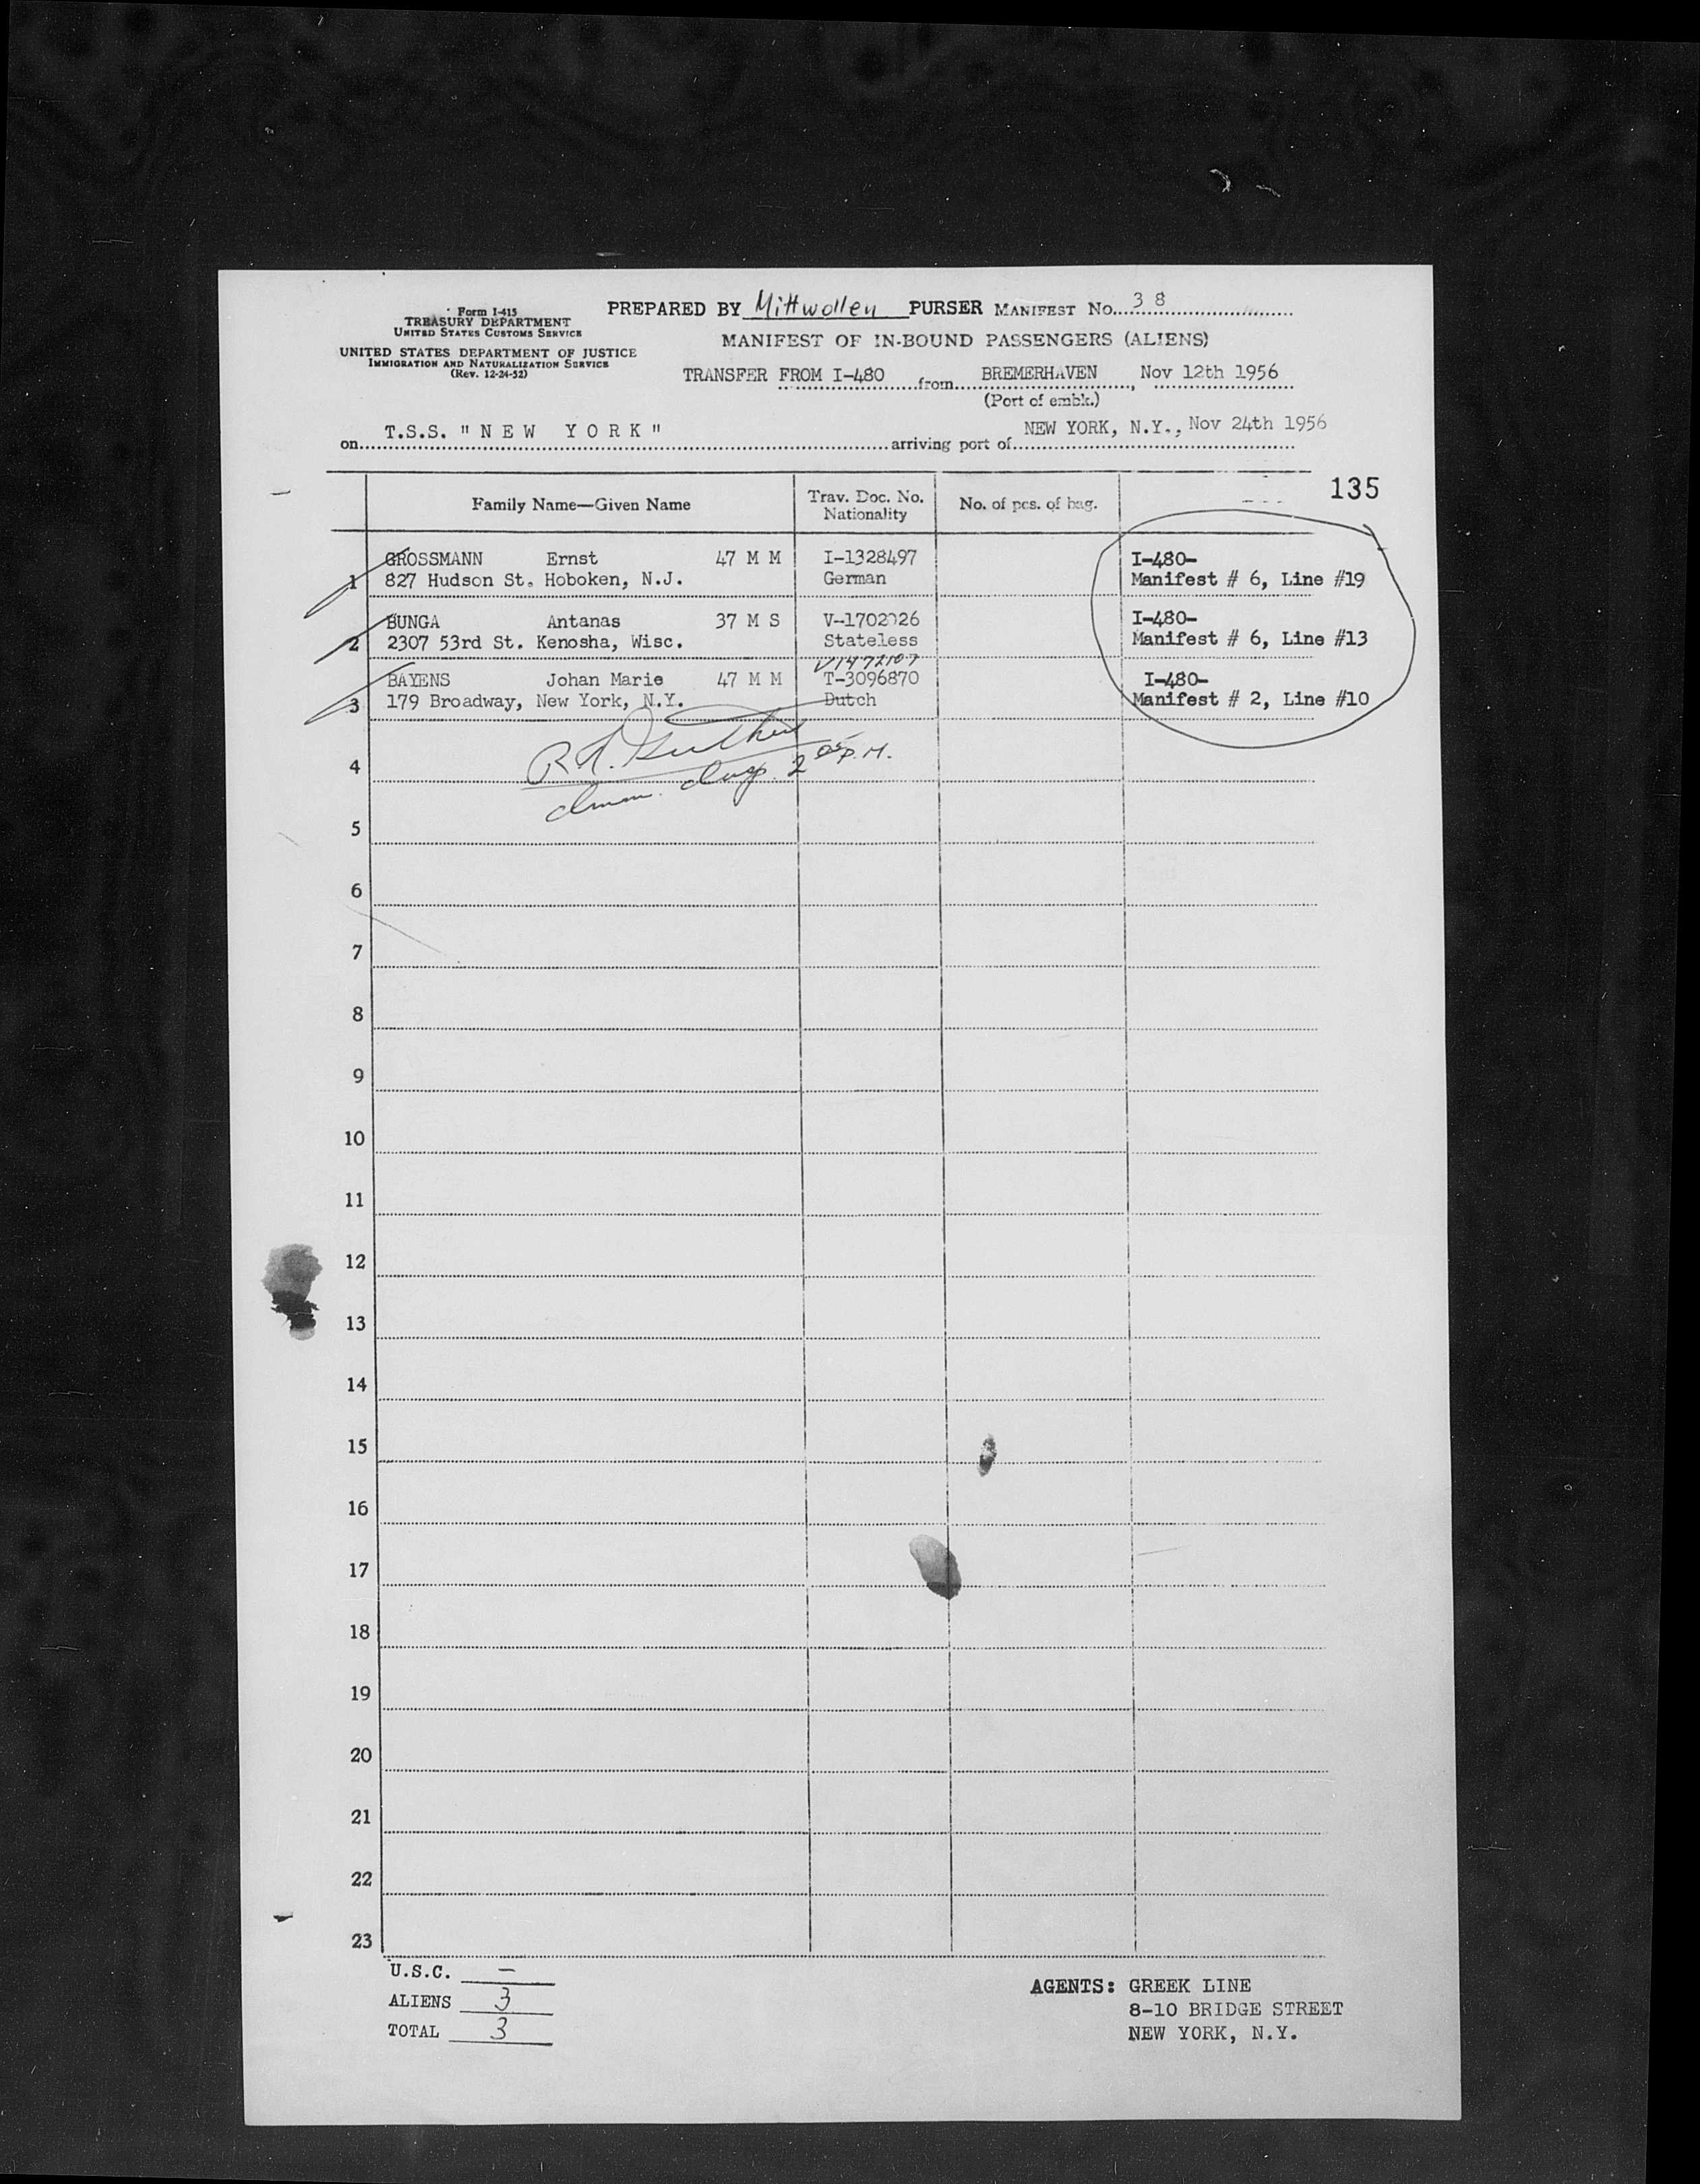 Form I-415
TREASURY DEPARTMENT
UNITED STATES CUSTOMS SERVICE
UNITED STATES DEPARTMENT OF JUSTICE
IMMIGRATION AND NATURALIZATION SERVICE
(Rev. 12-24-52)
PREPARED BY Mittwollen PURSER MANIFEST No. 38
MANIFEST OF IN-BOUND PASSENGERS (ALIENS)
TRANSFER FROM I-480 from BREMERHAVEN, Nov 12th 1956
(Port of embk.)
on T.S.S. "NEW YORK" arriving port of NEW YORK, N.Y., Nov 24th 1956
135
Family Name—Given Name Trav. Doc. No. Nationality No. of pcs. of bag.
1 GROSSMANN Ernst 47 M M I-1328497 I-480-
827 Hudson St. Hoboken, N.J. German Manifest # 6, Line #19
2 BUNGA Antanas 37 M S V-1702026 I-480-
2307 53rd St. Kenosha, Wisc. Stateless Manifest # 6, Line #13
V1472107
3 BAYENS Johan Marie 47 M M T-3096870 I-480-
179 Broadway, New York, N.Y. Dutch Manifest # 2, Line #10
4
2 05 P.M.
5
6
7
8
9
10
11
12
13
14
15
16
17
18
19
20
21
22
23
U.S.C. —
ALIENS 3
TOTAL 3
AGENTS: GREEK LINE
8-10 BRIDGE STREET
NEW YORK, N.Y.